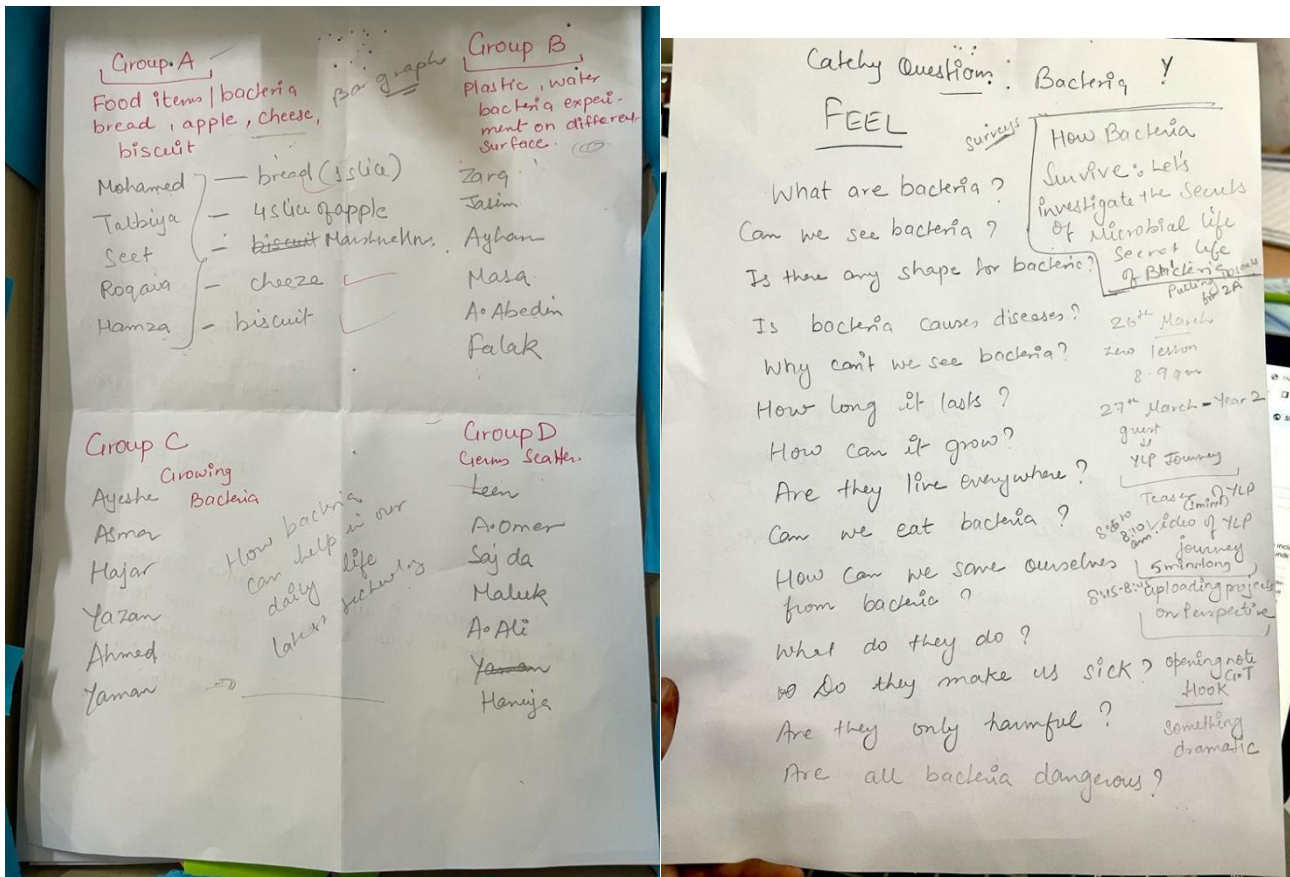 Group A
Food items / bacteria
bread, apple, cheese,
biscuit
Bar graph
Mohamed — bread (1 slice)
Talbiya — 4 slice of apple
Seet — biscuit
Roqaia — cheeze
Hamza — biscuit
Group B
Plastic, water
bacteria experi-
ment on different
surface.
Zarq
Jasim
Ayhan
Masa
A. Abedin
Falak
Group C
Growing
Bacteria
Ayeshe
Asma
Hajar
Yazan
Ahmed
Yaman
How bactria
can help in our
daily life
latest
Group D
Germs Scatter.
Leen
A. Omer
Sajda
Maluk
A. Ali
Yaman
Haniya
Catchy Question: Bacteria
FEEL
surveys
How Bacteria
Survive: Let's
investigate the Secrets
of Microbial life
Secret life
of Bacteria
Pulling
for 2A
What are bacteria?
Can we see bacteria?
Is there any shape for bacteric?
Is bacteria causes diseases?
Why can't we see bacteria?
How long it lasts?
How can it grow?
Are they live everywhere?
Can we eat bacteria?
How can we save ourselves
from bacteric?
What do they do?
Do they make us sick?
Are they only harmful?
Are all bacteria dangerous?
26th March
Zero lesson
8-9 am
27th March - Year 2
guest
YLP Journey
Teaser of YLP
(1 mint)
8:10 am Video of YLP
journey
5 min long
8:15-8: uploading projects
on Perspective
opening note
G.T
Hook
something
dramatic